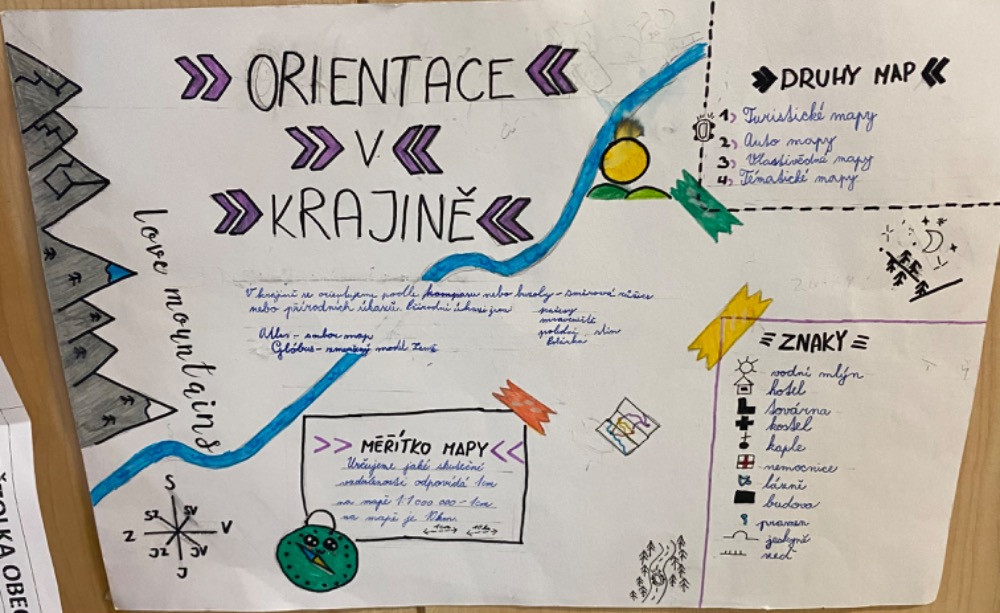 ORIENTACE
V
KRAJINĚ
love mountains
V krajině se orientujeme podle kompasu nebo buzoly - směrová růžice
nebo přírodních úkazů. Přírodní úkazy jsou
mraveniště
polední stín
Atlas - soubor map
Glóbus - zmenšený model Země
DRUHY MAP
1) Turistické mapy
2) Auto mapy
3) Vlastivědné mapy
4) Tématické mapy
MĚŘÍTKO MAPY
Určujeme jaké skuteční
vzdálenosti odpovídá 1cm
na mapě 1:1 000 000 - 1cm
na mapě je 10km.
1cm 10km
S
SZ SV
Z V
JZ JV
J
ZNAKY
vodní mlýn
hotel
továrna
kostel
kaple
nemocnice
lázně
budova
pramen
jeskyně
ŠTOLKA OBEC